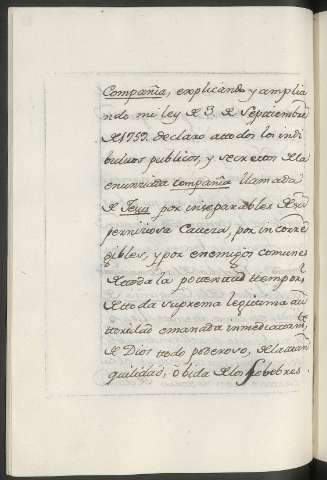 Compañia, explicando y amplia
ndo mi ley de 3. de Septtiembre
de 1759. declaro attodos los indi
biduos publicos, y secretos de la
enunziada Compañia llamada
de Jesus por inseparables de su
perniziosa Caveza, por incorre
gibles, y por enemigos comunes
de toda la pottestad ttemporl,
de tto da suprema legitima au
ttoridad emanada inmediattamte
de Dios ttodo poderoso, de la ttran
quilidad, o bida de los Sobebres